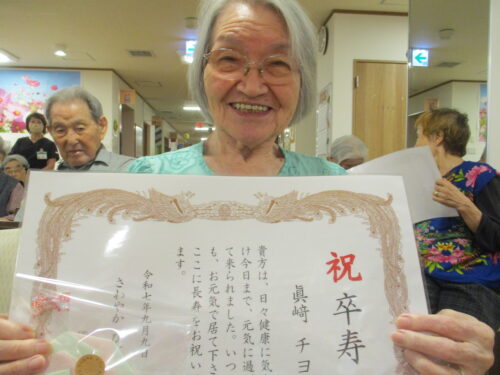 祝 卒寿
眞﨑 チヨ
貴方は、日々健康に気
け今日まで、元気に過
て来られました。いつ
も、お元気で居て下さ
ここに長寿をお祝い
ます。
令和七年九月九日
さわやか